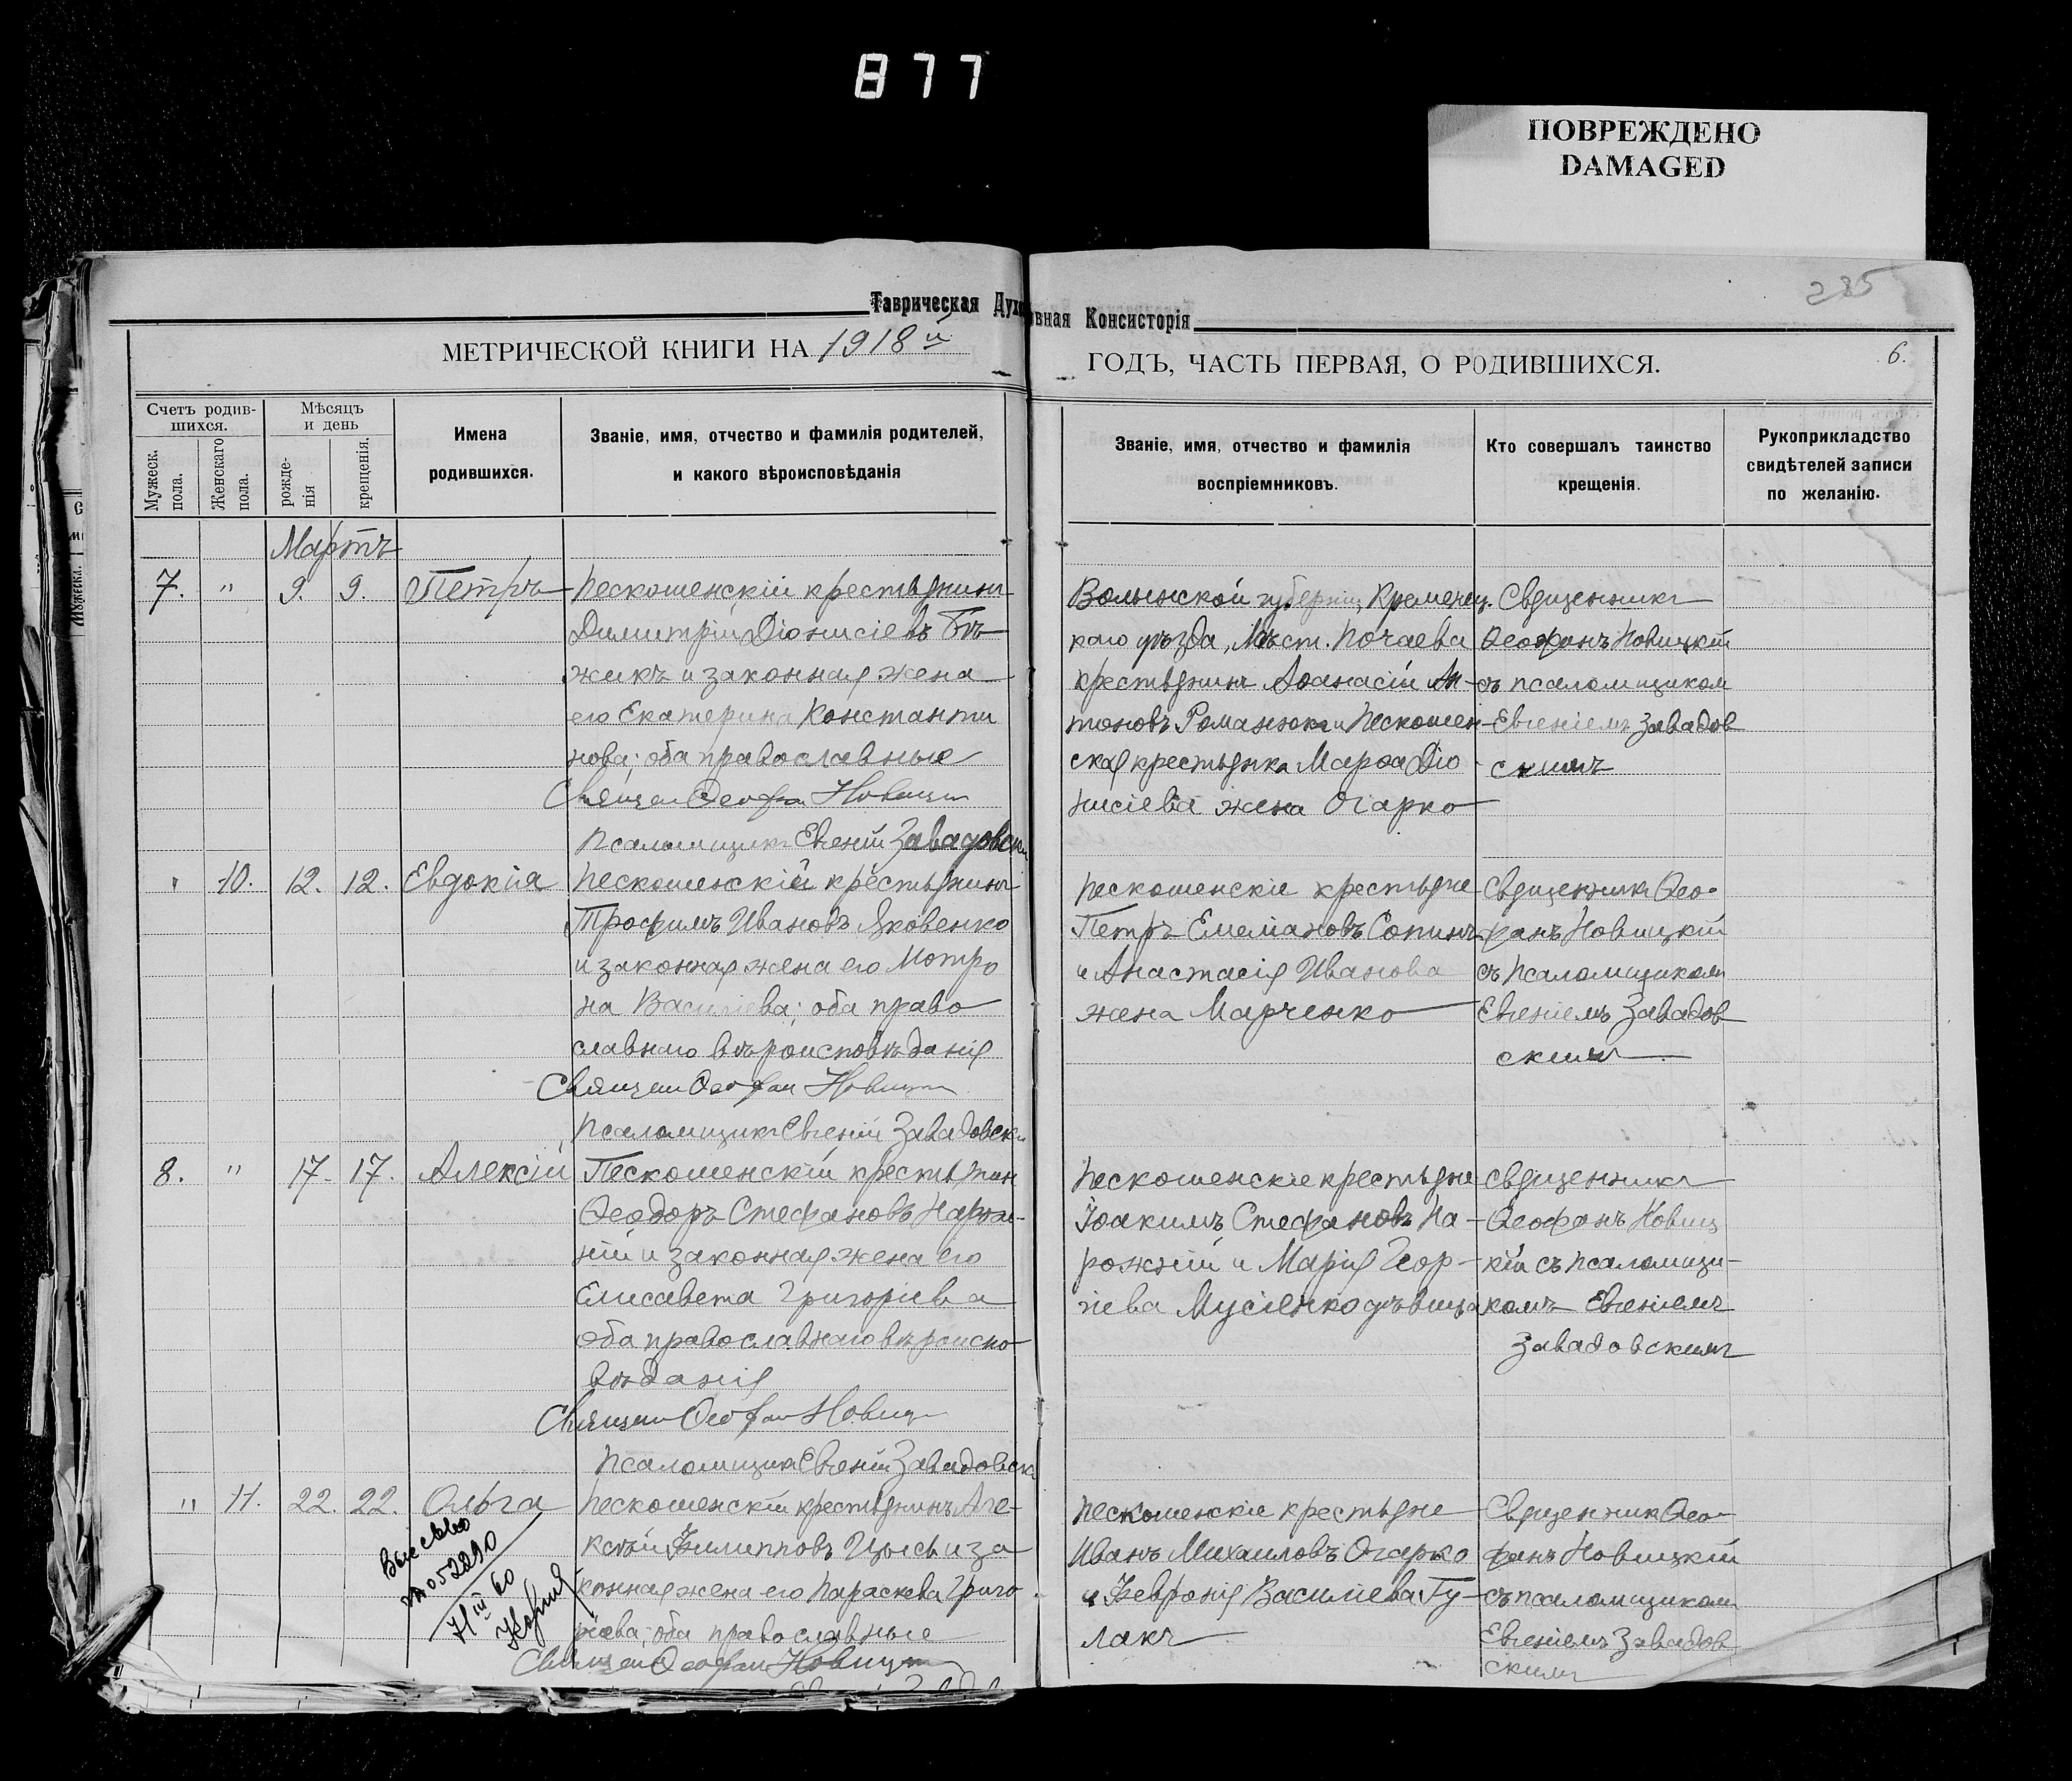 877
ПОВРЕЖДЕНО
DAMAGED
225
Таврическая Духовная Консисторія
МЕТРИЧЕСКОЙ КНИГИ НА 1918й
ГОДЪ, ЧАСТЬ ПЕРВАЯ, О РОДИВШИХСЯ.
6.
Счетъ родив-
шихся.
Мужеск.
пола.
Женскаго
пола.
Мѣсяцъ
и день
рожде-
нія
крещенія.
Имена
родившихся.
Званіе, имя, отчество и фамилія родителей,
и какого вѣроисповѣданія
Званіе, имя, отчество и фамилія
воспріемниковъ.
Кто совершалъ таинство
крещенія.
Рукоприкладство
свидѣтелей записи
по желанію.
Мартъ
7. " 9. 9. Петръ
Пескошенскій крестьянинъ
Димитрій Діонисіевъ Бѣ-
жикъ и законная жена
его Екатерина Константи
нова; оба православные
Священ Ѳеофан Новицкій
Псаломщикъ Евгеній Завадовскі
Волынской губерніи Кременец-
каго уѣзда, Мѣст. Почаева
крестьянинъ Аѳанасій Ан-
тоновъ Романюкъ и Пескошен-
ская крестьянка Марѳа Діо
нисіева жена Огарко
Священникъ
Ѳеофанъ Новицкій
съ псаломщиком
Евгеніемъ Завадов
скимъ
" 10. 12. 12. Евдокія
Пескошенскій крестьянинъ
Трофимъ Ивановъ Яковенко
и законная жена его Мотро
на Василіева; оба право
славнаго вѣроисповѣданія
Священ Ѳеофан Новицкій
Псаломщикъ Евгеній Завадовскі
Пескошенскіе крестьяне
Петръ Емеліановъ Сопинъ
и Анастасія Иванова
жена Марченко
Священникъ Ѳео-
фанъ Новицкій
съ псаломщиком
Евгеніемъ Завадов
скимъ
8. " 17. 17. Алексій
Пескошенскій крестьянин
Ѳеодоръ Стефановъ Нарож-
ній и законная жена его
Елисавета Григоріева
оба православнаго вѣроиспо
вѣданія
Священ Ѳеофан Новицкій
Псаломщикъ Евгеній Завадовскі
Пескошенскіе крестьяне
Іоакимъ Стефановъ На-
рожній и Марія Геор-
гіева Мусіенко дѣвица
Священникъ
Ѳеофанъ Новиц
кій съ псаломщи-
комъ Евгеніемъ
Завадовскимъ
" 11. 22. 22. Ольга
Пескошенскій крестьянинъ Але-
ксѣй Филипповъ Цысь и за
конная жена его Параскева Григо
ріева; оба православные
Священ Ѳеофан Новицкій
Пескошенскіе крестьяне
Иванъ Михаиловъ Огарко
и Февронія Василіева Гу-
лакъ
Священникъ Ѳео-
фанъ Новицкій
съ псаломщиком
Евгеніемъ Завадов
скимъ
052290